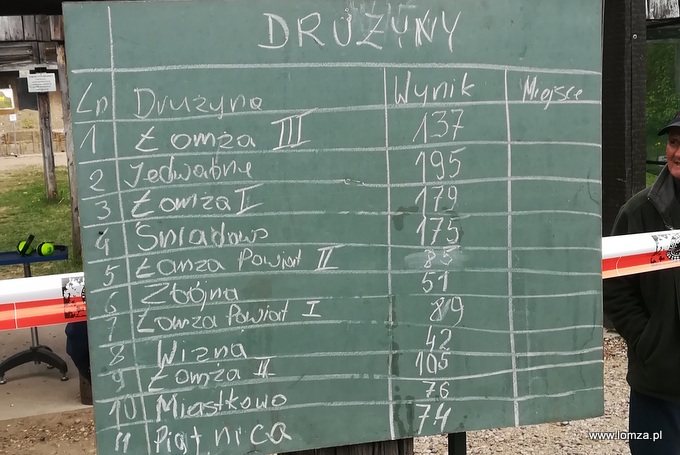 DRUŻYNY
Lp Drużyna Wynik Miejsce
1 Łomża III 137
2 Jedwabne 195
3 Łomża I 179
4 Śniadowo 175
5 Łomża Powiat II 85
6 Zbójna 51
7 Łomża Powiat I 89
8 Wizna 42
9 Łomża II 105
10 Miastkowo 76
11 Piątnica 74
www.lomza.pl